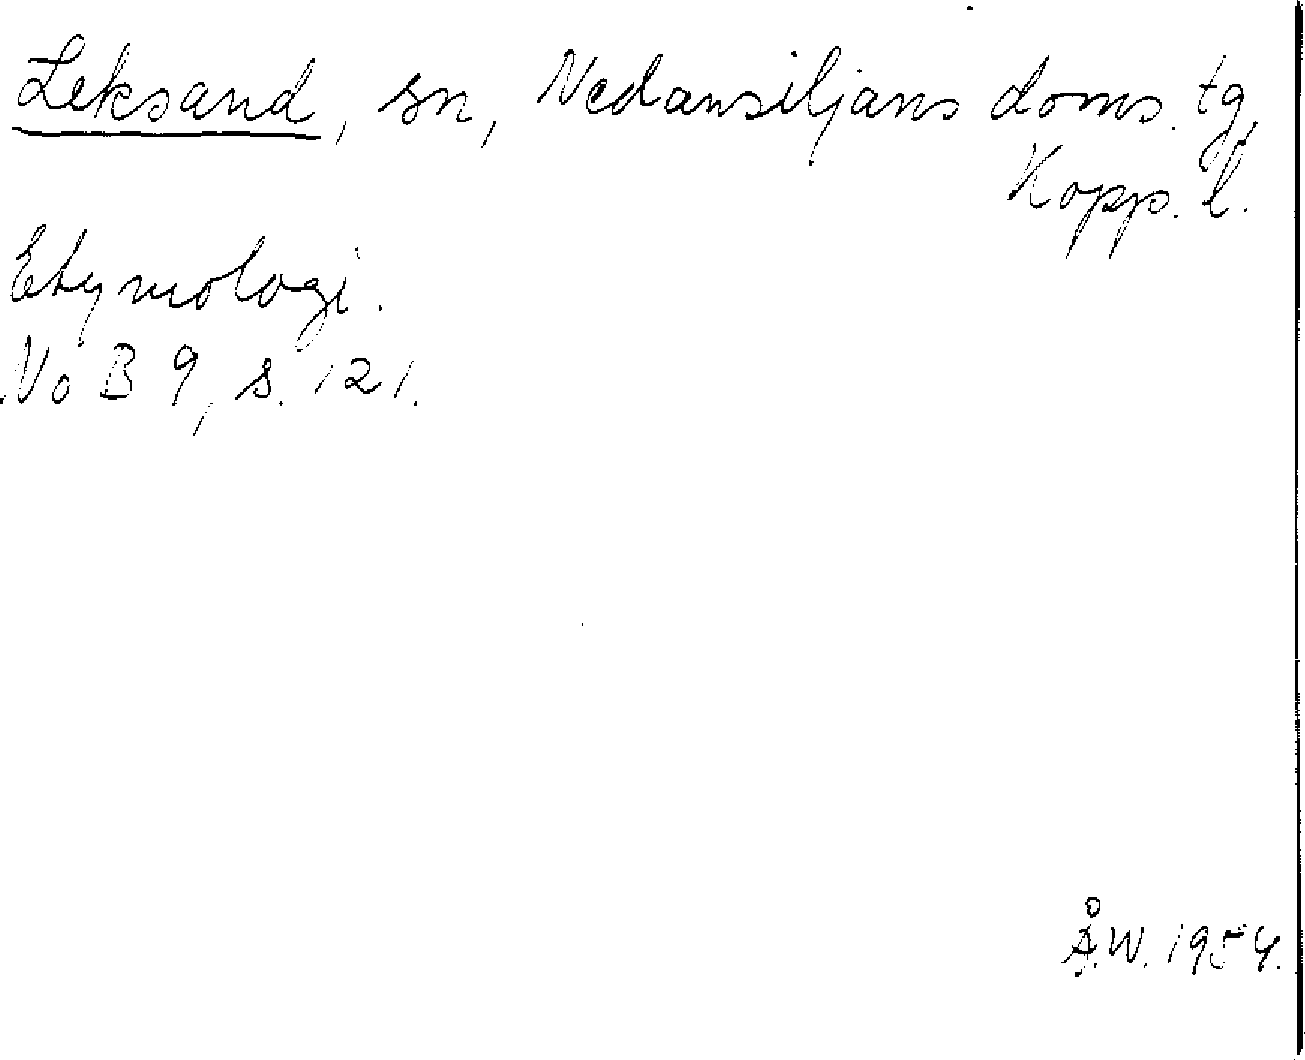 Leksand, sn, Nedansiljans doms. tg,
Kopp. l.
Etymologi.
NoB 9, s. 121.
Å.W. 1954.